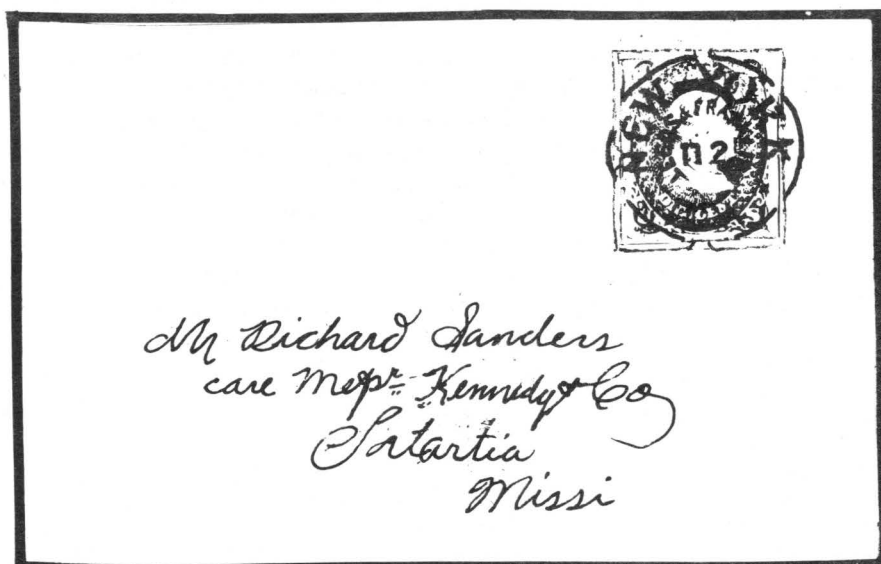 NEW YORK
Mr Richard Sanders
care Messrs Kennedy & Co
Satartia
Missi